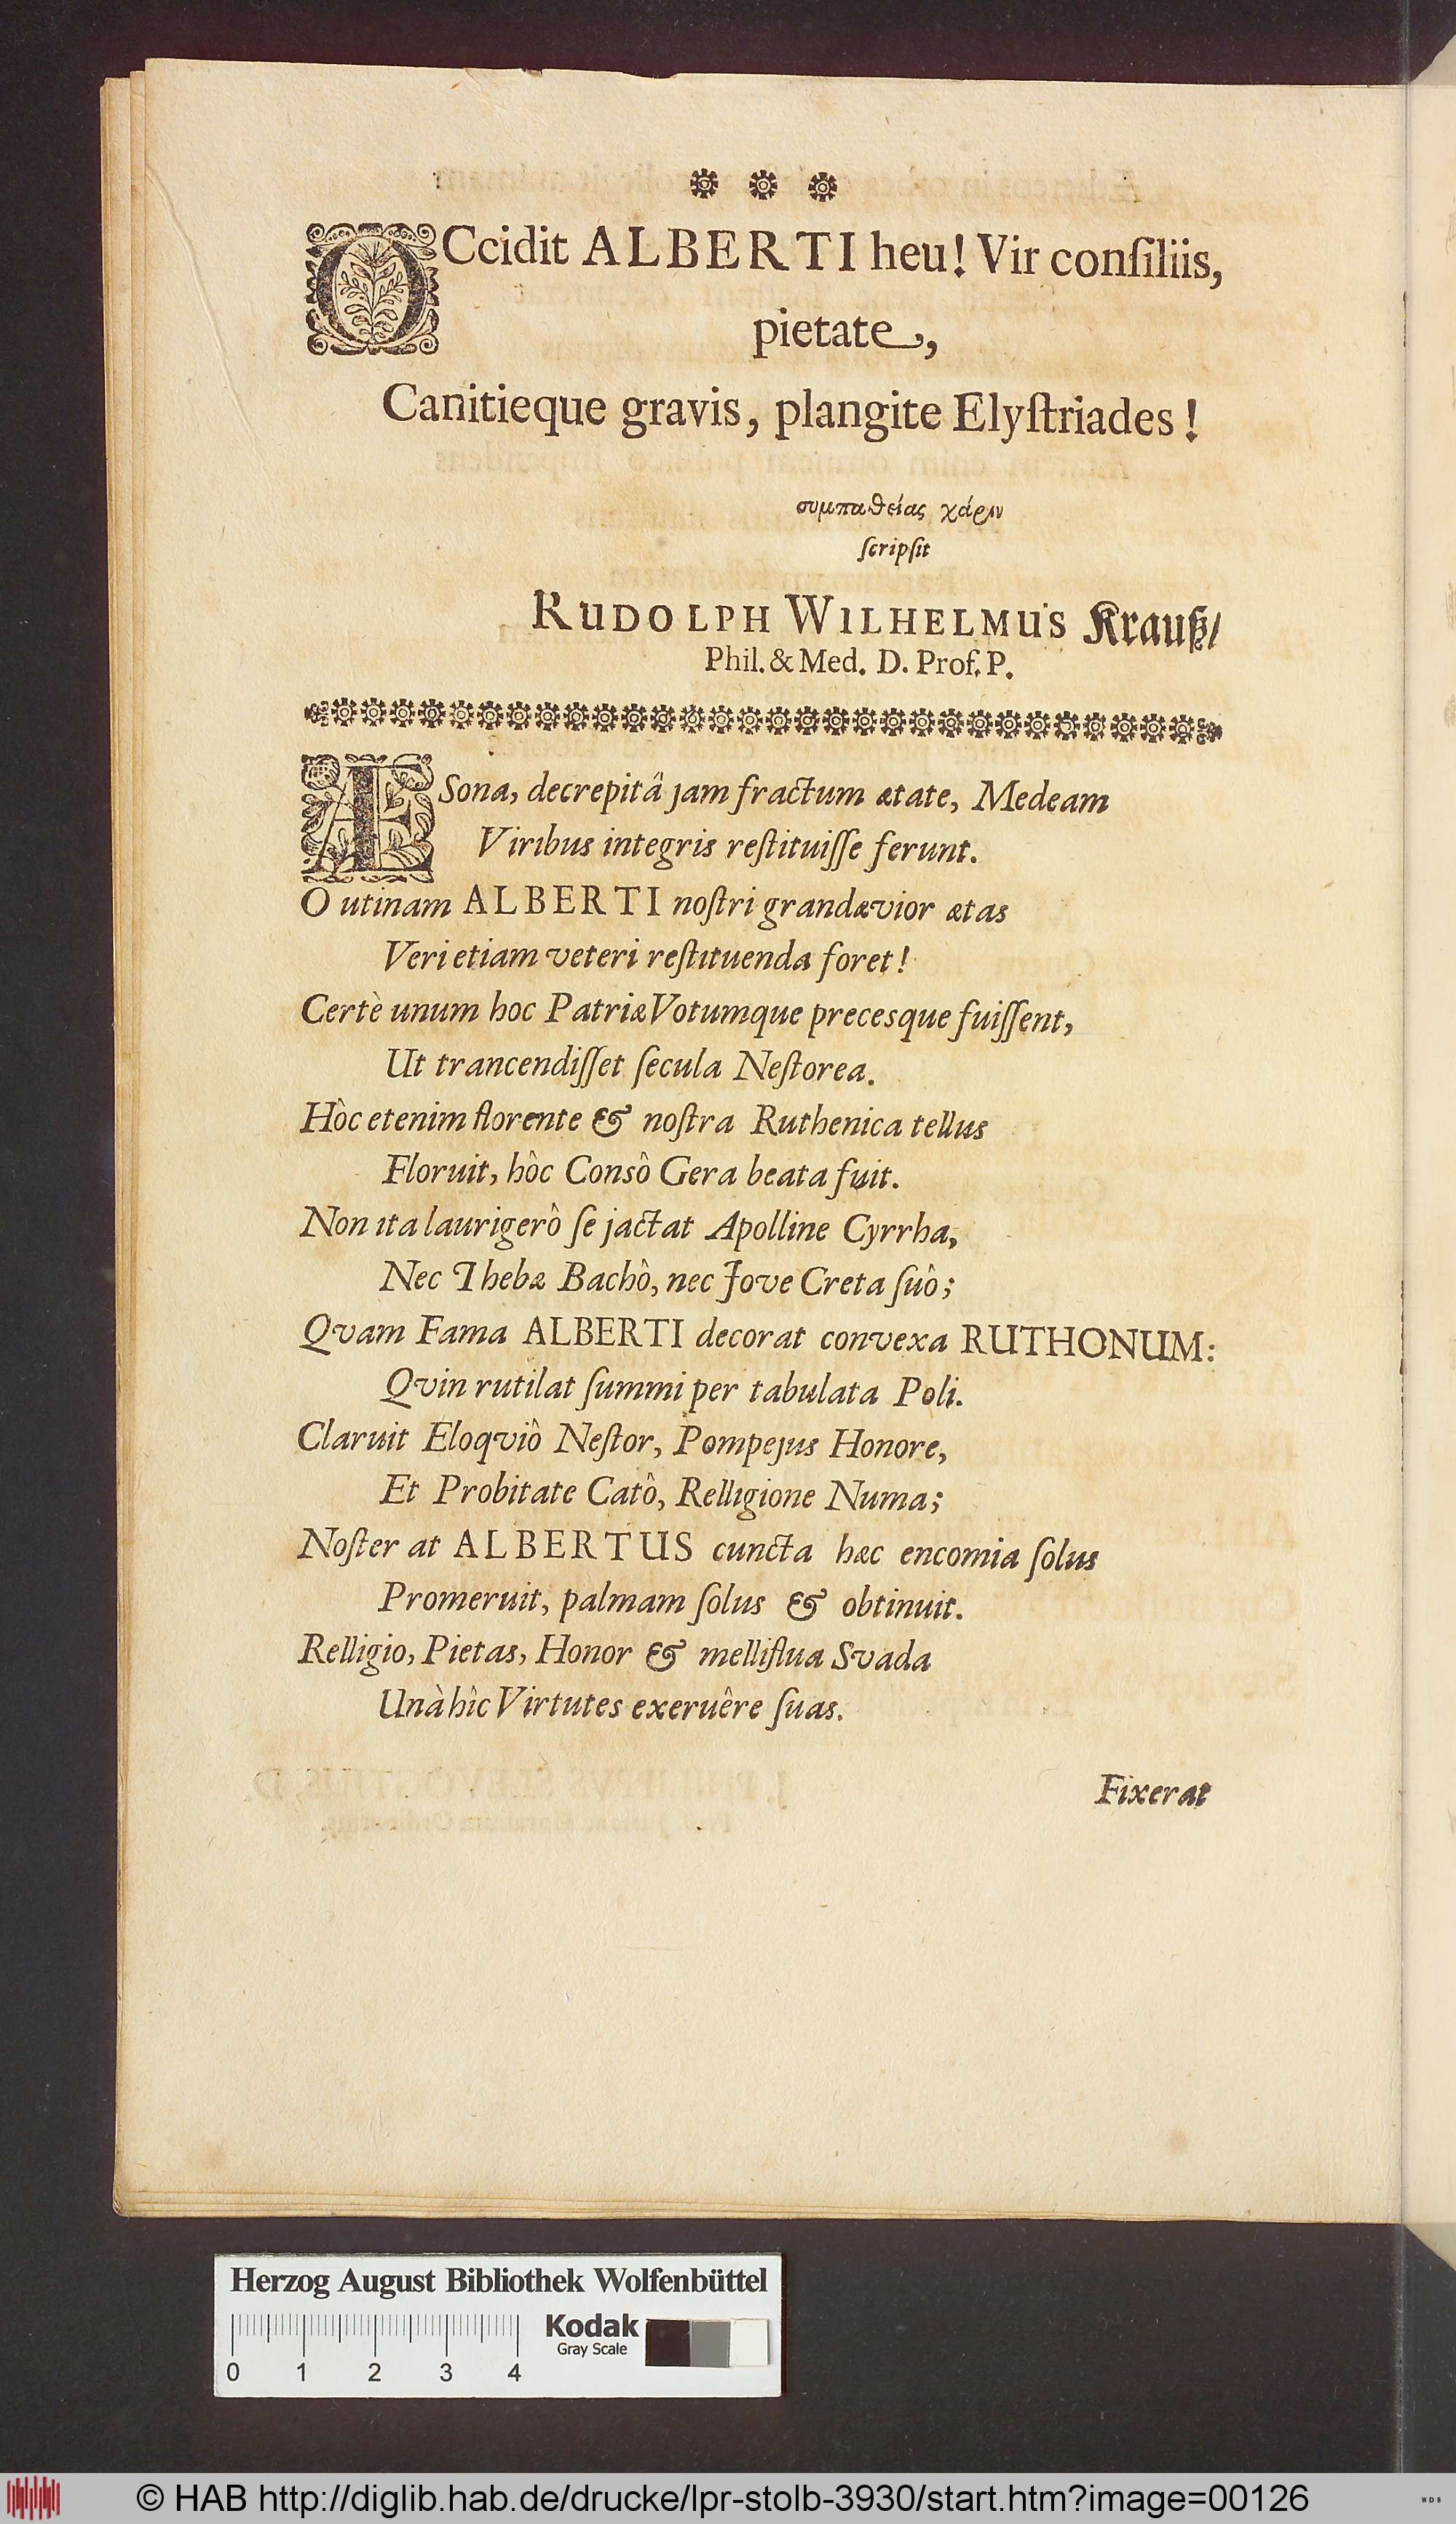 OCcidit ALBERTI heu! Vir conſiliis,
pietate,
Canitieque gravis, plangite Elyſtriades!
συμπαθείας χάριν
ſcripſit
RUDOLPH WILHELMUS Krauß/
Phil. & Med. D. Prof. P.
ÆSona, decrepitâ jam fractum ætate, Medeam
Viribus integris reſtituiſſe ferunt.
O utinam ALBERTI noſtri grandævior ætas
Veri etiam veteri reſtituenda foret!
Certè unum hoc Patriæ Votumque precesque fuiſſent,
Ut trancendiſſet ſecula Neſtorea.
Hòc etenim florente & noſtra Ruthenica tellus
Floruit, hôc Consô Gera beata fuit.
Non ita laurigerô ſe jactat Apolline Cyrrha,
Nec Thebæ Bachô, nec Jove Creta ſuô;
Qvam Fama ALBERTI decorat convexa RUTHONUM:
Qvin rutilat ſummi per tabulata Poli.
Claruit Eloqviô Neſtor, Pompejus Honore,
Et Probitate Catô, Relligione Numa;
Noſter at ALBERTUS cuncta hæc encomia ſolus
Promeruit, palmam ſolus & obtinuit.
Relligio, Pietas, Honor & melliflua Svada
Unà hîc Virtutes exeruêre ſuas.
Fixerat
Herzog August Bibliothek Wolfenbüttel
Kodak
Gray Scale
0 1 2 3 4
© HAB http://diglib.hab.de/drucke/lpr-stolb-3930/start.htm?image=00126
WDB